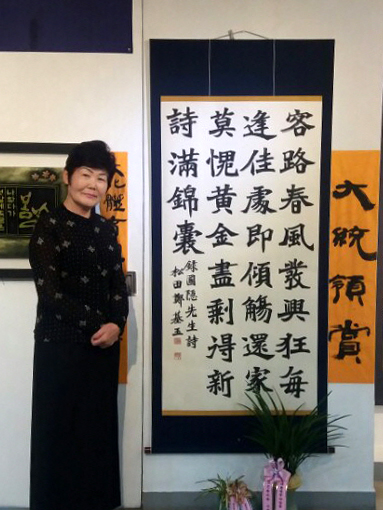 大統領賞
客路春風發興狂每
逢佳處即傾觴還家
莫愧黃金盡剩得新
詩滿錦囊
錄圃隱先生詩
松田鄭基玉